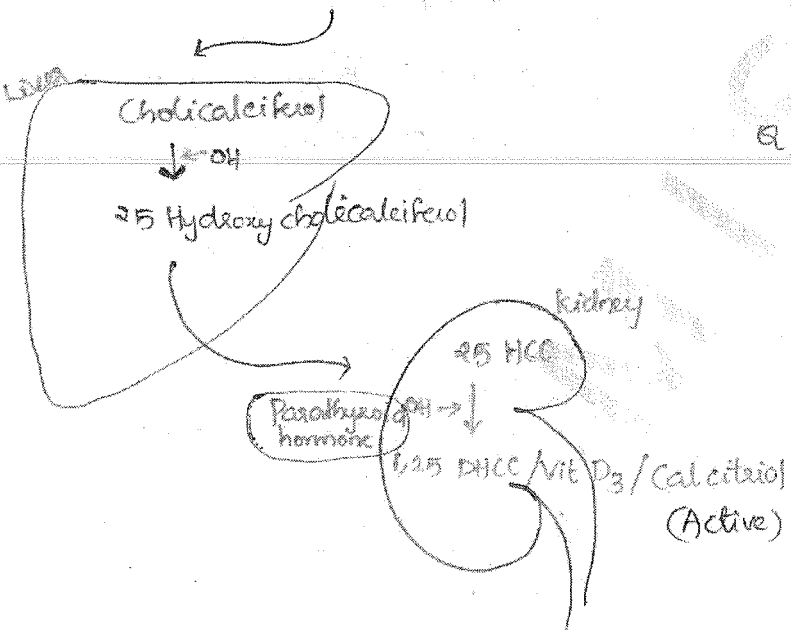 Liver
Cholicalciferol
← OH
25 Hydroxy cholecalciferol
kidney
25 HCC
Parathyroid
hormone
OH →
1,25 DHCC / Vit D3 / Calcitriol
(Active)
Q